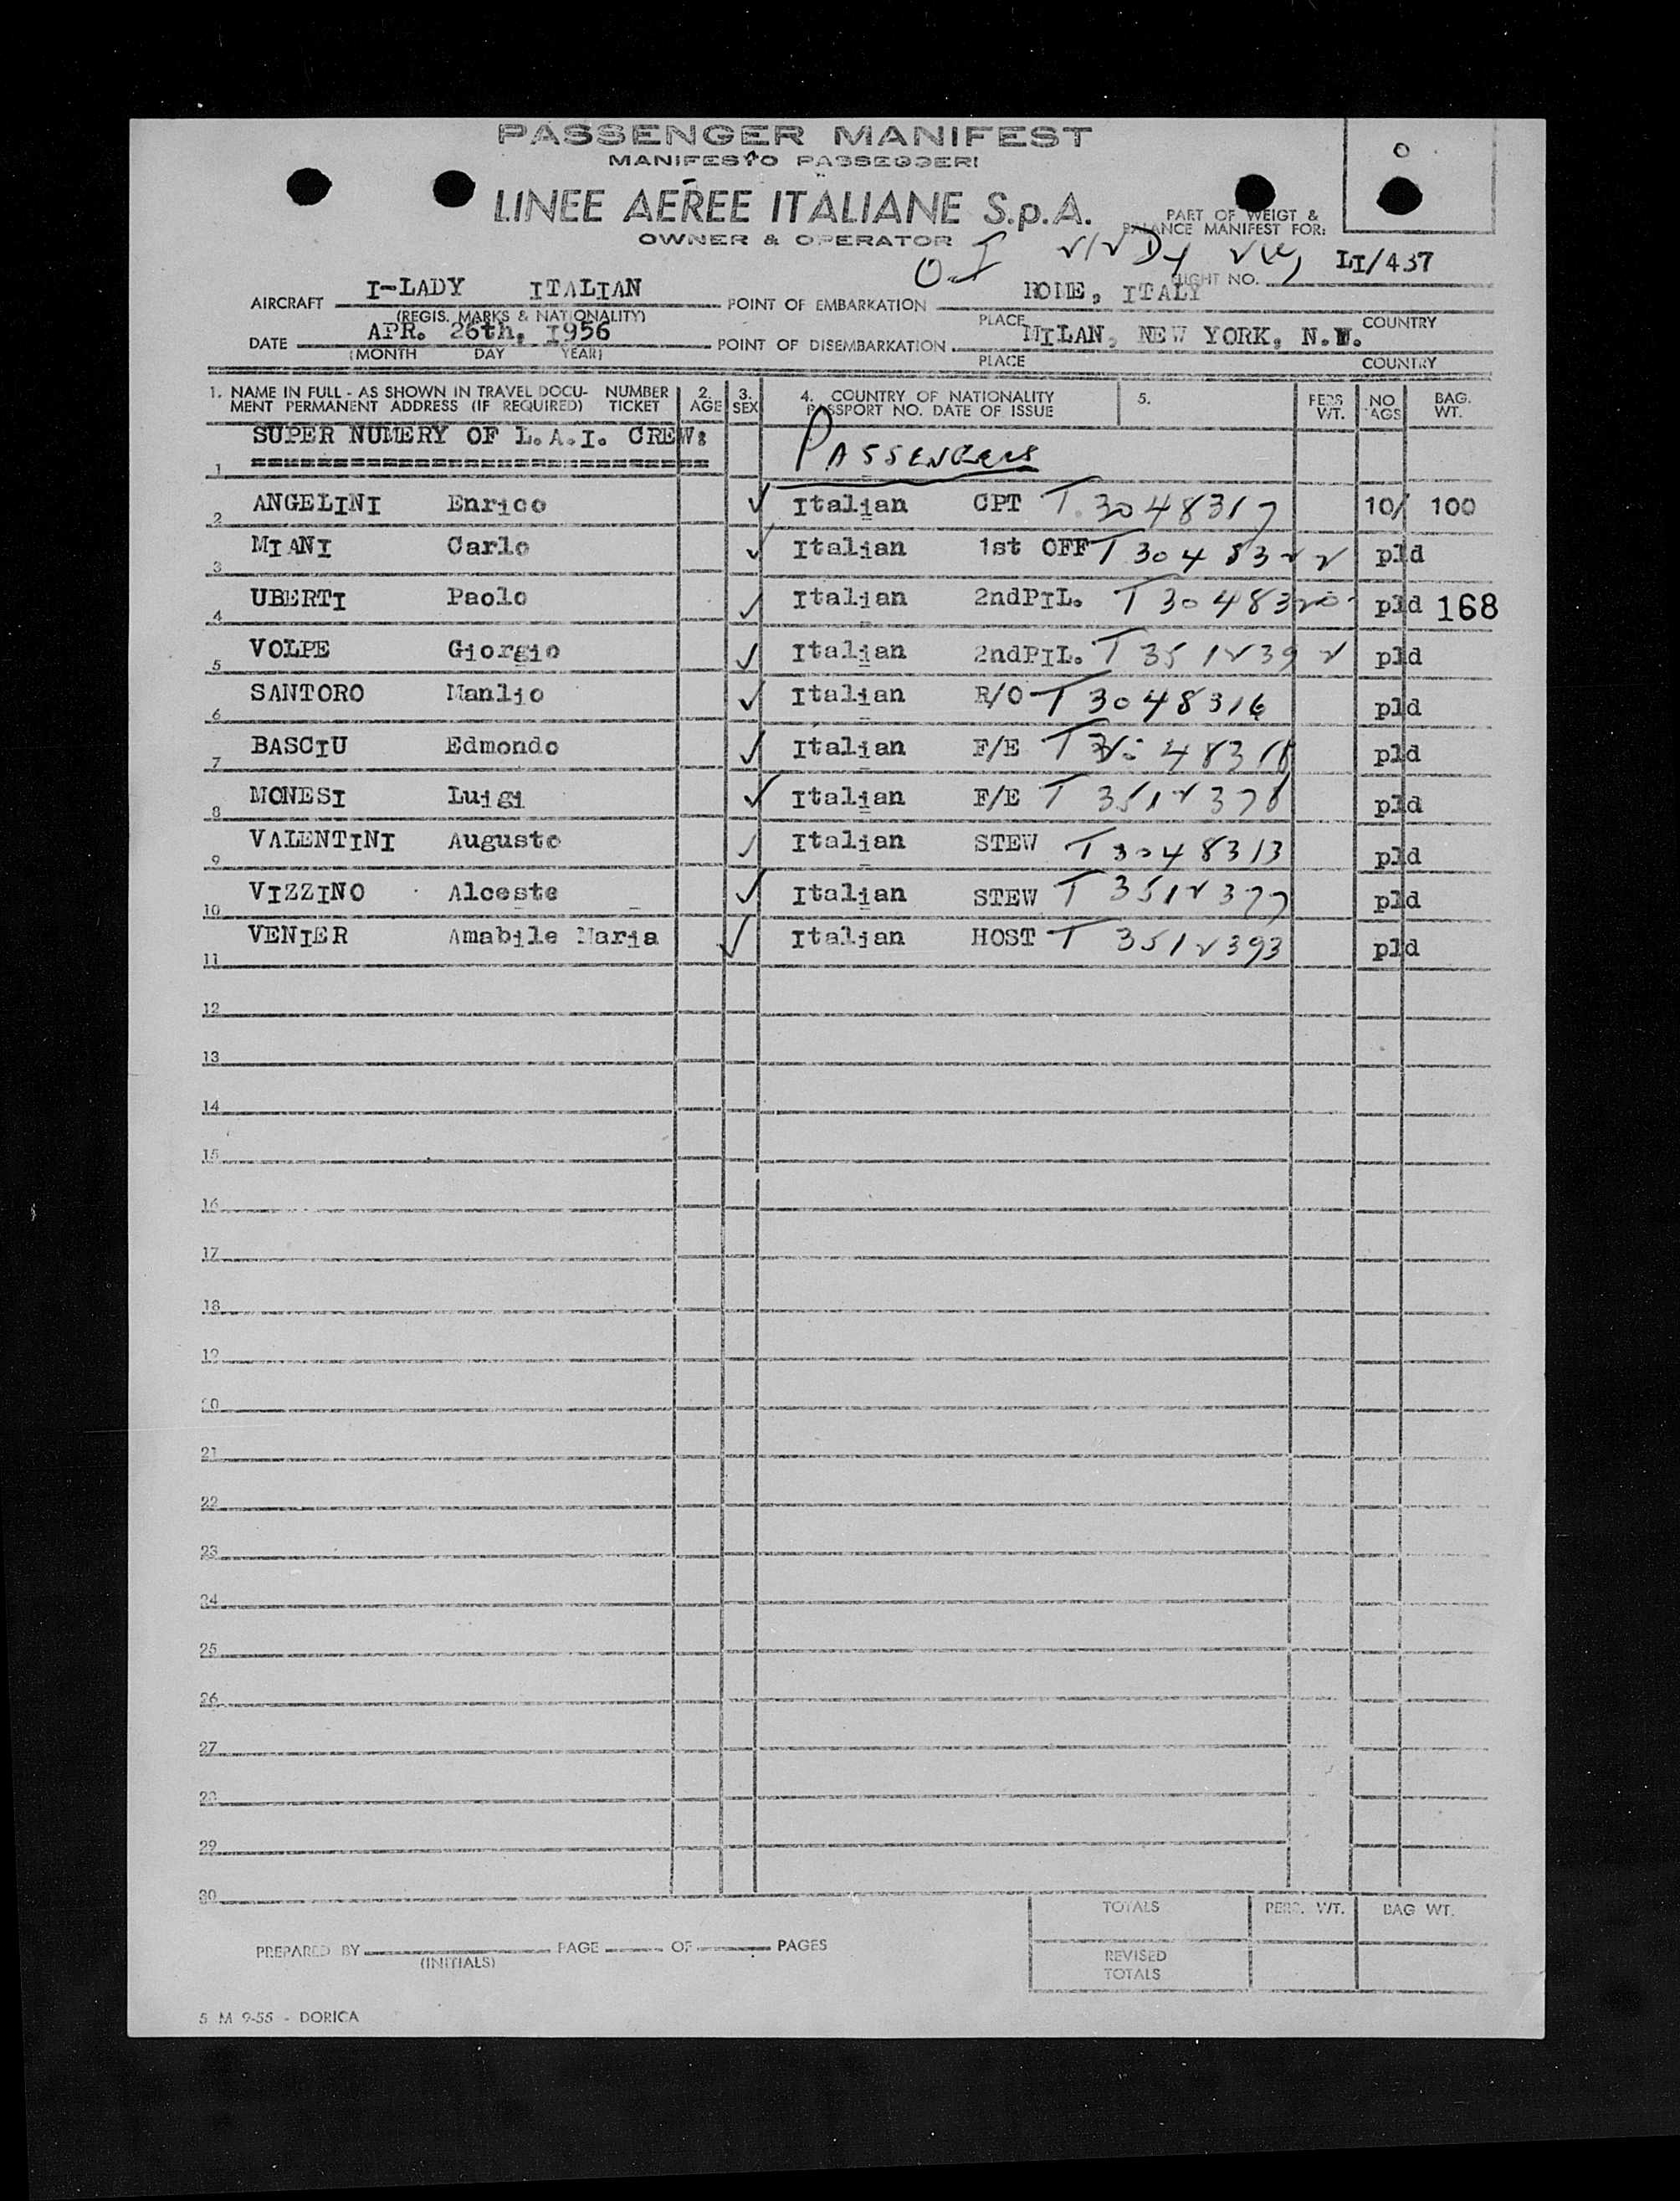 PASSENGER MANIFEST
MANIFESTO PASSEGGERI
LINEE AEREE ITALIANE S.p.A.
OWNER & OPERATOR
PART OF WEIGT &
BALANCE MANIFEST FOR:
FLIGHT NO. LI/437
AIRCRAFT I-LADY ITALIAN POINT OF EMBARKATION ROME, ITALY
(REGIS. MARKS & NATIONALITY) PLACE COUNTRY
DATE APR. 26th, 1956 POINT OF DISEMBARKATION MILAN, NEW YORK, N.Y.
(MONTH DAY YEAR) PLACE COUNTRY
1. NAME IN FULL - AS SHOWN IN TRAVEL DOCU- NUMBER 2. 3. 4. COUNTRY OF NATIONALITY 5. PERS NO BAG.
MENT PERMANENT ADDRESS (IF REQUIRED) TICKET AGE SEX PASSPORT NO. DATE OF ISSUE WT. AGS WT.
SUPER NUMERY OF L.A.I. CREW: PASSENGERS
1 ============================
2 ANGELINI Enrico ✓ Italian CPT T.3048317 10/ 100
3 MIANI Carlo ✓ Italian 1st OFF T 3048322 pld
4 UBERTI Paolo ✓ Italian 2ndPIL. T 3048320 pld 168
5 VOLPE Giorgio ✓ Italian 2ndPIL. T 3512392 pld
6 SANTORO Manlio ✓ Italian R/O T 3048316 pld
7 BASCIU Edmondo ✓ Italian F/E pld
8 MONESI Luigi ✓ Italian F/E T 3512378 pld
9 VALENTINI Augusto ✓ Italian STEW T 3048313 pld
10 VIZZINO Alceste ✓ Italian STEW T 3512377 pld
11 VENIER Amabile Maria ✓ Italian HOST T 3512393 pld
12
13
14
15
16
17
18
19
20
21
22
23
24
25
26
27
28
29
30
TOTALS PERS. WT. BAG WT.
PREPARED BY PAGE OF PAGES
(INITIALS)
REVISED
TOTALS
5 M 9-55 - DORICA